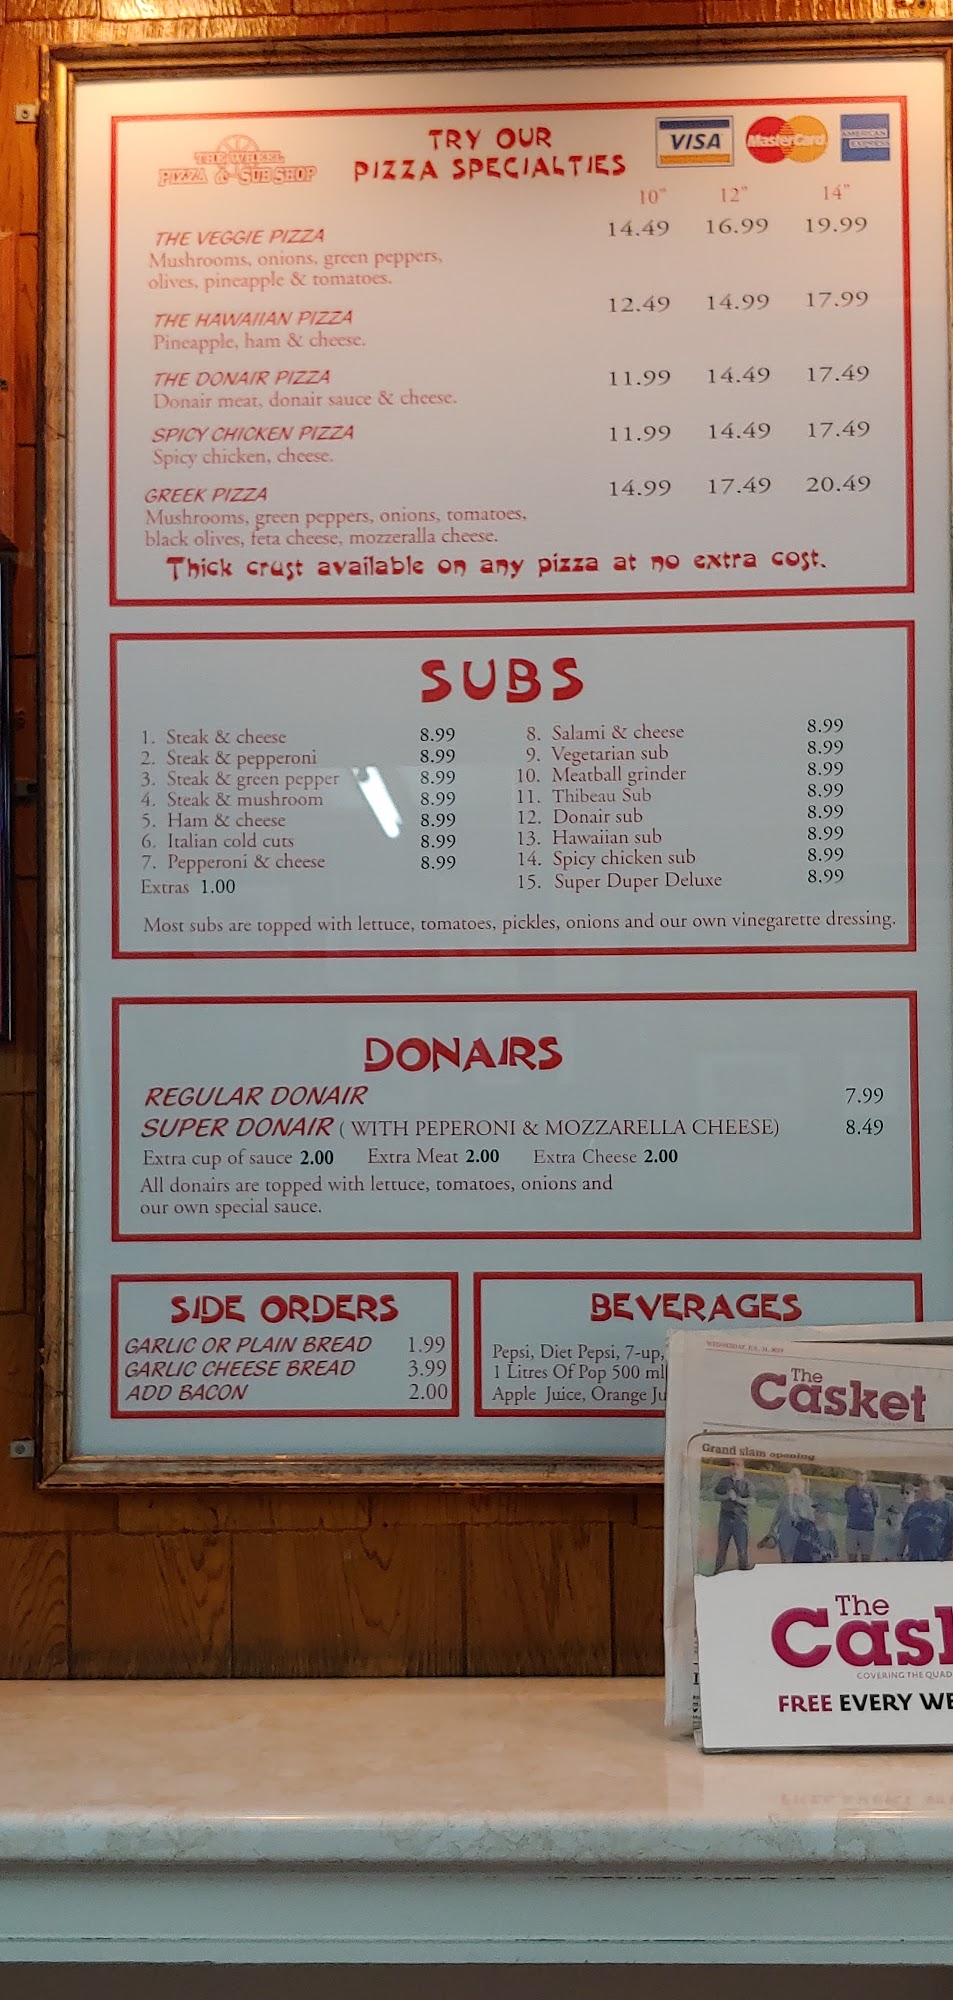 THE WHEEL
PIZZA & SUB SHOP
TRY OUR
PIZZA SPECIALTIES
VISA
MasterCard
AMERICAN
EXPRESS
10" 12" 14"
THE VEGGIE PIZZA 14.49 16.99 19.99
Mushrooms, onions, green peppers,
olives, pineapple & tomatoes.
THE HAWAIIAN PIZZA 12.49 14.99 17.99
Pineapple, ham & cheese.
THE DONAIR PIZZA 11.99 14.49 17.49
Donair meat, donair sauce & cheese.
SPICY CHICKEN PIZZA 11.99 14.49 17.49
Spicy chicken, cheese.
GREEK PIZZA 14.99 17.49 20.49
Mushrooms, green peppers, onions, tomatoes,
black olives, feta cheese, mozzeralla cheese.
Thick crust available on any pizza at no extra cost.
SUBS
1. Steak & cheese 8.99
2. Steak & pepperoni 8.99
3. Steak & green pepper 8.99
4. Steak & mushroom 8.99
5. Ham & cheese 8.99
6. Italian cold cuts 8.99
7. Pepperoni & cheese 8.99
Extras 1.00
8. Salami & cheese 8.99
9. Vegetarian sub 8.99
10. Meatball grinder 8.99
11. Thibeau Sub 8.99
12. Donair sub 8.99
13. Hawaiian sub 8.99
14. Spicy chicken sub 8.99
15. Super Duper Deluxe 8.99
Most subs are topped with lettuce, tomatoes, pickles, onions and our own vinegarette dressing.
DONAIRS
REGULAR DONAIR 7.99
SUPER DONAIR ( WITH PEPERONI & MOZZARELLA CHEESE) 8.49
Extra cup of sauce 2.00 Extra Meat 2.00 Extra Cheese 2.00
All donairs are topped with lettuce, tomatoes, onions and
our own special sauce.
SIDE ORDERS
GARLIC OR PLAIN BREAD 1.99
GARLIC CHEESE BREAD 3.99
ADD BACON 2.00
BEVERAGES
Pepsi, Diet Pepsi, 7-up,
1 Litres Of Pop 500 ml
Apple Juice, Orange Ju
The
Casket
Grand slam opening
The
Cask
COVERING THE QUAD
FREE EVERY WE